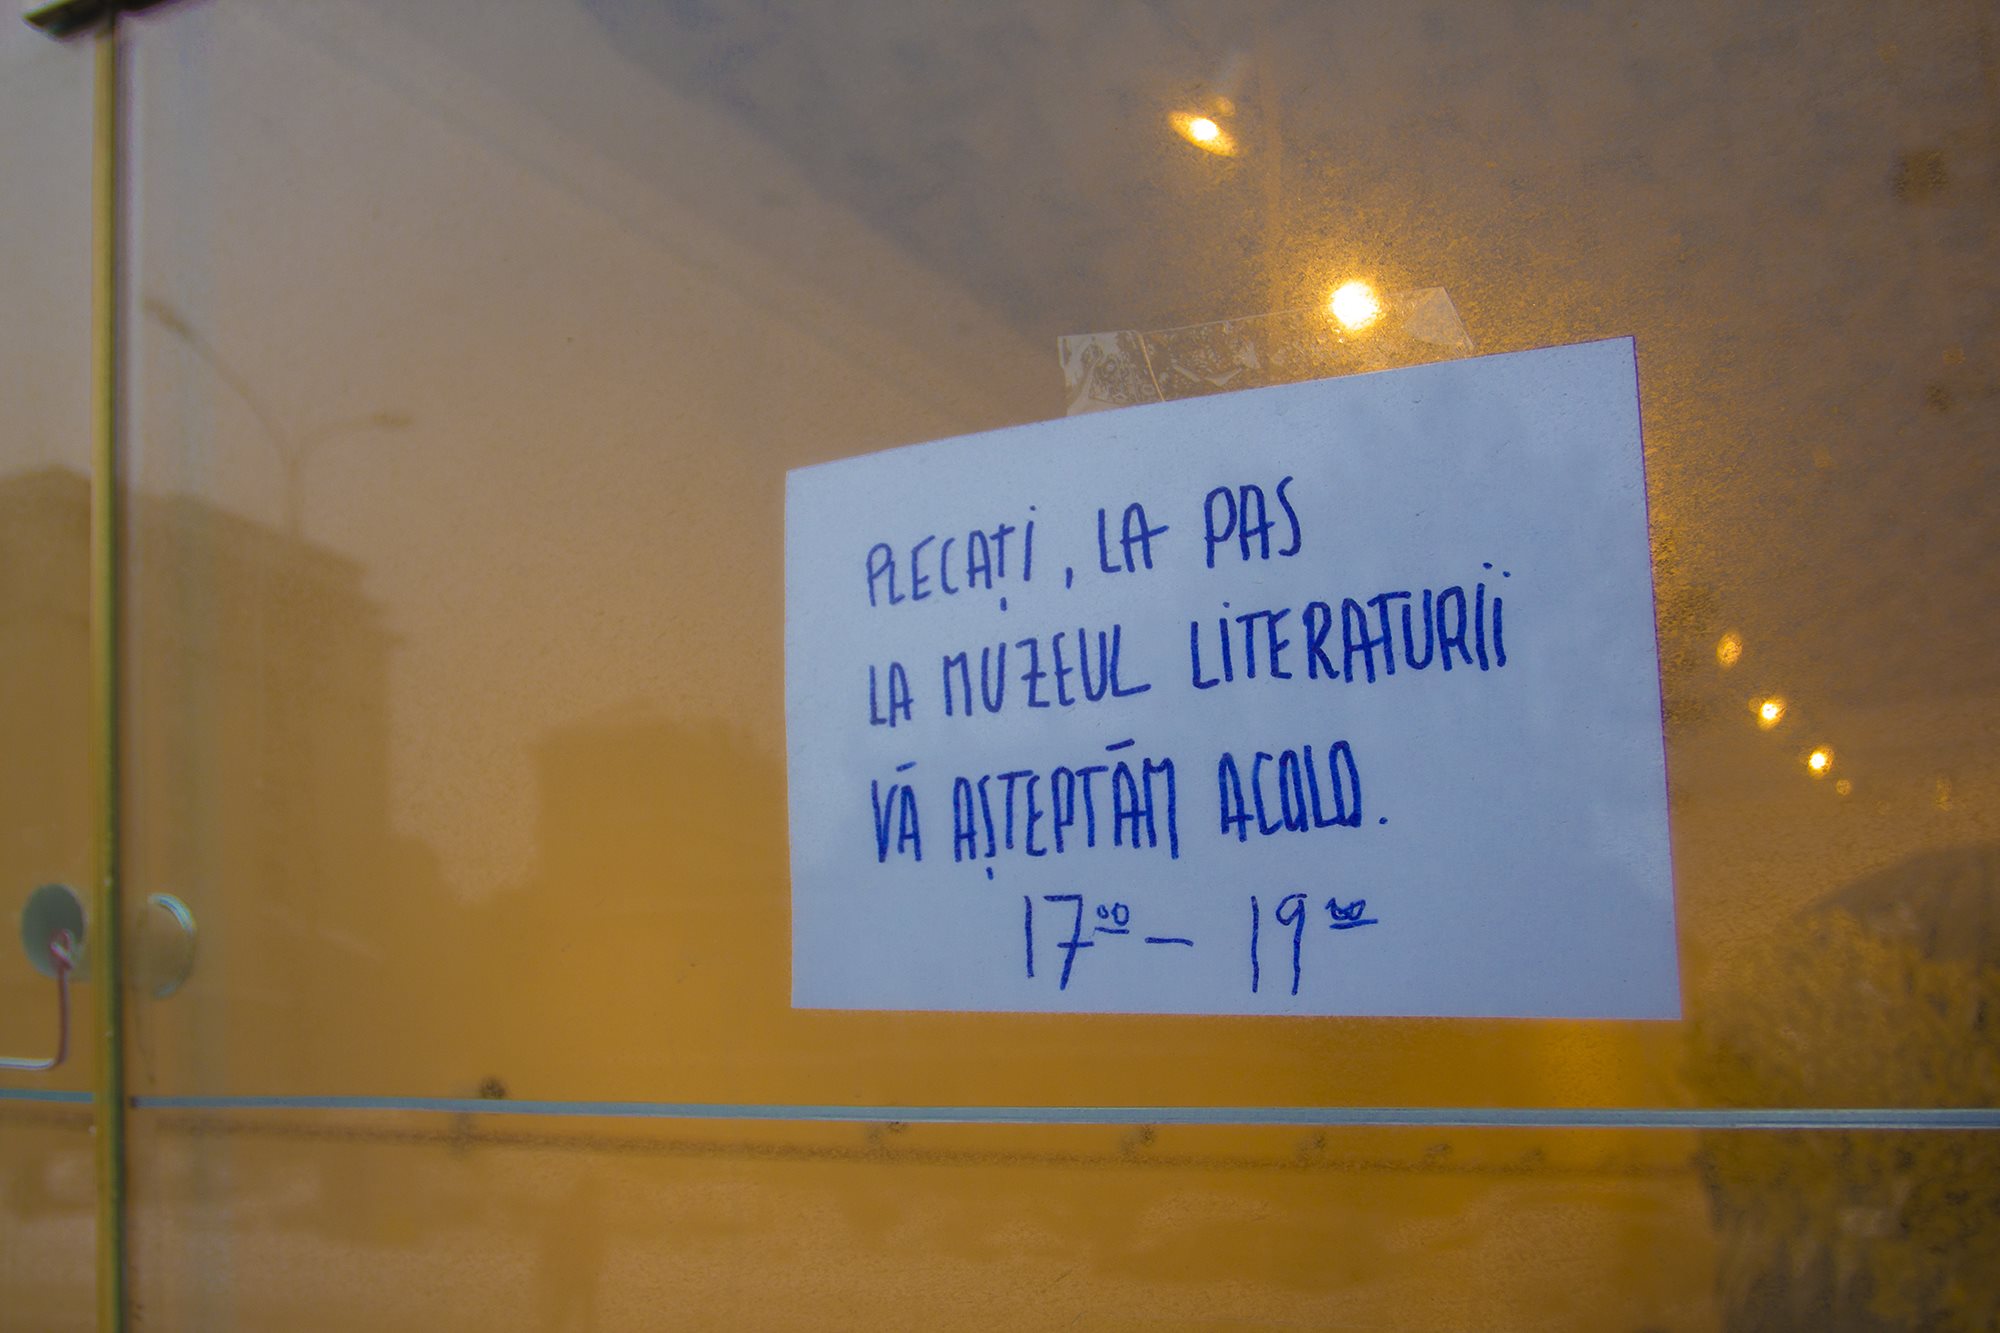 PLECAȚI, LA PAS
LA MUZEUL LITERATURII
VĂ AȘTEPTĂM ACOLO.
17⁰⁰ – 19⁰⁰